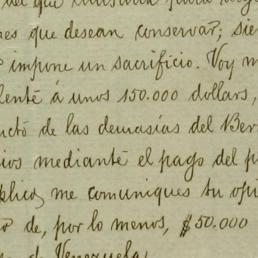 nes que desean conservar; sie
impone un sacrificio. Voy m
lente á unos 150.000 dollars,
uctó de las demasías del Ber
ios mediante el pago del p
plico, me comuniques tu opi
o de, por lo menos, $50.000
de Venezuela